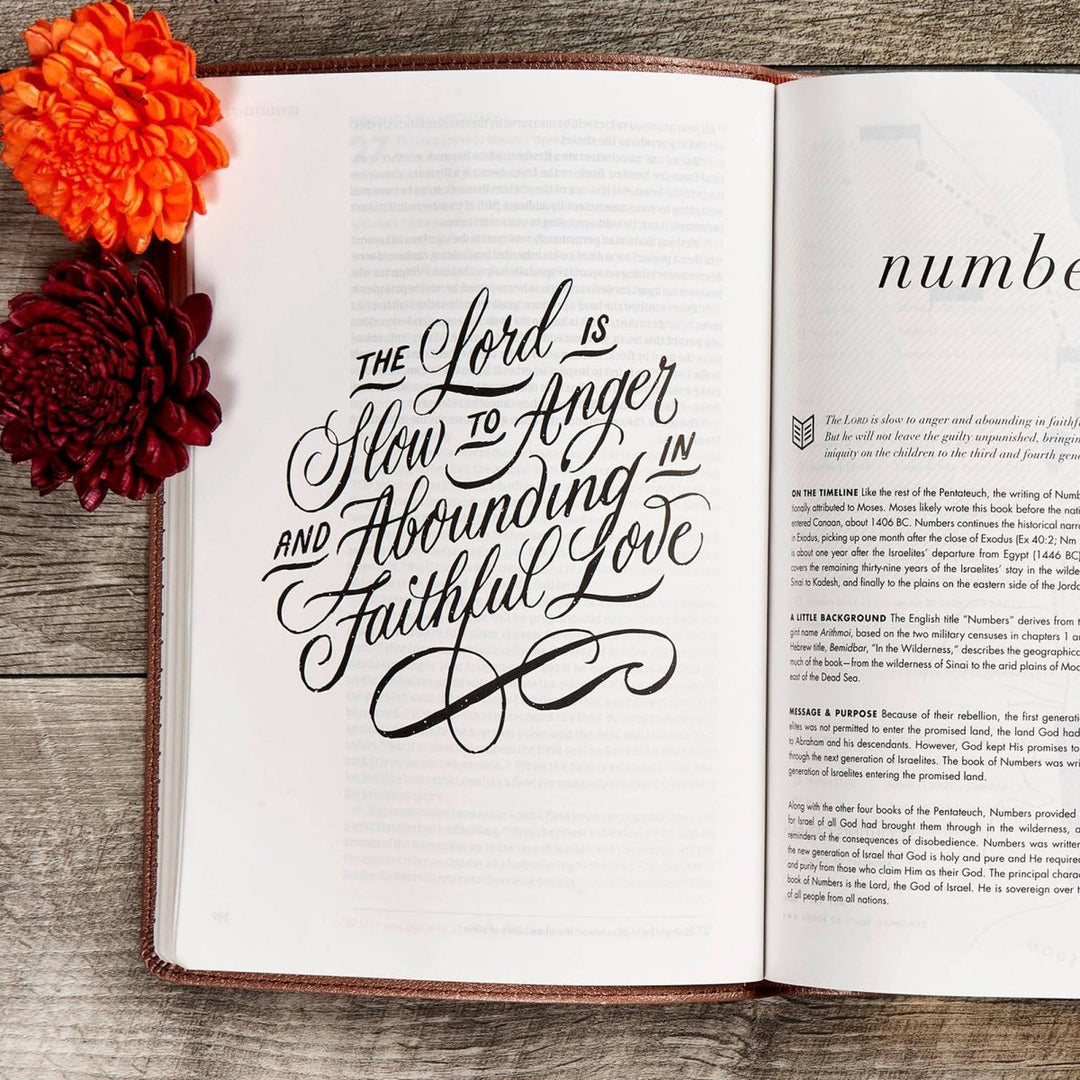 THE Lord IS
Slow TO Anger
AND Abounding IN
Faithful Love
numbe
The LORD is slow to anger and abounding in faithf
But he will not leave the guilty unpunished, bringin
iniquity on the children to the third and fourth gene
ON THE TIMELINE Like the rest of the Pentateuch, the writing of Numb
tionally attributed to Moses. Moses likely wrote this book before the nati
entered Canaan, about 1406 BC. Numbers continues the historical narra
in Exodus, picking up one month after the close of Exodus (Ex 40:2; Nm
is about one year after the Israelites' departure from Egypt (1446 BC)
covers the remaining thirty-nine years of the Israelites' stay in the wilde
Sinai to Kadesh, and finally to the plains on the eastern side of the Jorda
A LITTLE BACKGROUND The English title "Numbers" derives from t
gint name Arithmoi, based on the two military censuses in chapters 1 a
Hebrew title, Bemidbar, "In the Wilderness," describes the geographica
much of the book—from the wilderness of Sinai to the arid plains of Moa
east of the Dead Sea.
MESSAGE & PURPOSE Because of their rebellion, the first generati
elites was not permitted to enter the promised land, the land God had
to Abraham and his descendants. However, God kept His promises to
through the next generation of Israelites. The book of Numbers was wri
generation of Israelites entering the promised land.
Along with the other four books of the Pentateuch, Numbers provided
for Israel of all God had brought them through in the wilderness, a
reminders of the consequences of disobedience. Numbers was written
the new generation of Israel that God is holy and pure and He require
and purity from those who claim Him as their God. The principal charac
book of Numbers is the Lord, the God of Israel. He is sovereign over t
of all people from all nations.